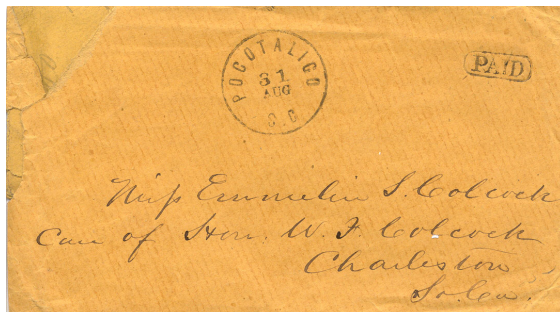 POCOTALIGO
31
AUG
S.C
PAID
Miss Emmelin S. Colcock
Care of Hon. W. F. Colcock
Charleston
So. Ca.